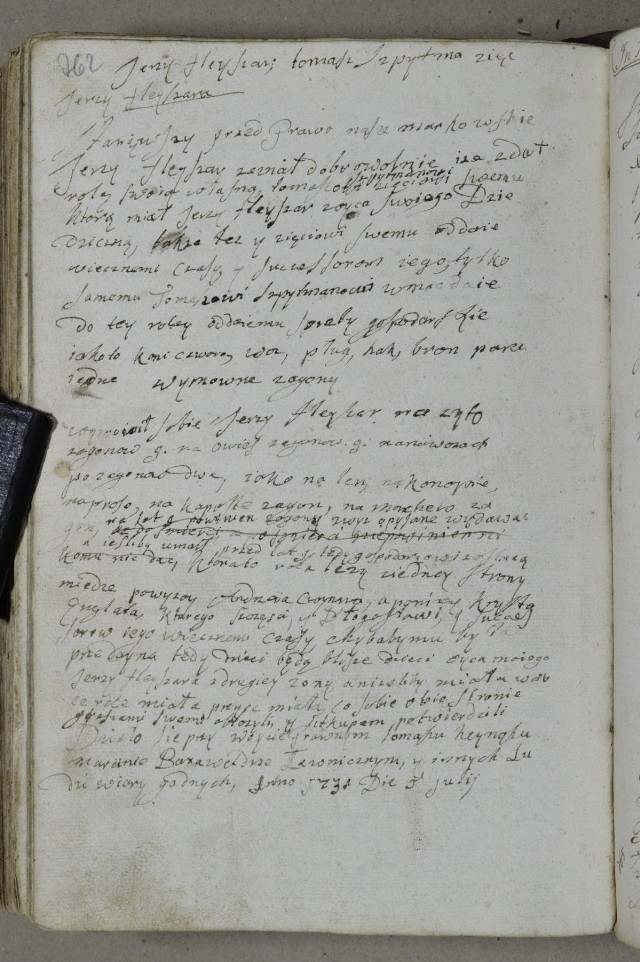 762
Jerzy Fleyszar, tomasz Szpytma zięc
Jerzy Fleyszara
Stanąwszy przed Prawo nasze markowskie
Jerzy Fleyszar zeznał dobrowolnie isz zdał
rolą swoią własną, tomaszowi Szpytmanowi zięciowi swemu
którą miał Jerzy Fleyszar zoyca swoiego Dzie
dziczną, także tez y zięciowi swemu oddaie
wiecznemi czasy y successorom iego, tylko
samemu Tomaszowi Szpytmanowi wmoc daie
Do tey roley oddaiemu sprzęty gospodarskie
iakoto koni czworo, woz, pług, hak, bron pare
iedne wymowne zagony
wymowił sobie Jerzy Fleyszar na zyto
zagonow 9. na owies zagonow 9. nanawozach
po zagonach dwa, iako na len, nakonopie,
naproso, na kapustę zagon, na marchew za
gon, na lat 9 powinien zagony zwyz opisane wydawac
a iesliby umarł przed lat 9 tedy gospodarzowi zostaią
komu nie dac, ktorato rola lezy ziedney strony
miedze powyszy Andrzeia, aponizy Krysztę
Englata, ktorego szczęsci, y Błogosławi, y succes
sorow iego wiecznemi czasy chybabymu
tedy dzieci będą blisze dzieci oyca moiego
Jerzy Fleyszara zdrugiey zony aniesliby miała
te role miała przysc miała, co sobie obie stronie
groszami swemi obłozyli, y litkupem potwierdzili
Działo się przy woycie prawnym tomaszu heynoszu
marcinie Barze y innych Lu
dzi wiary godnych, Anno 1738 Die 5 Julij